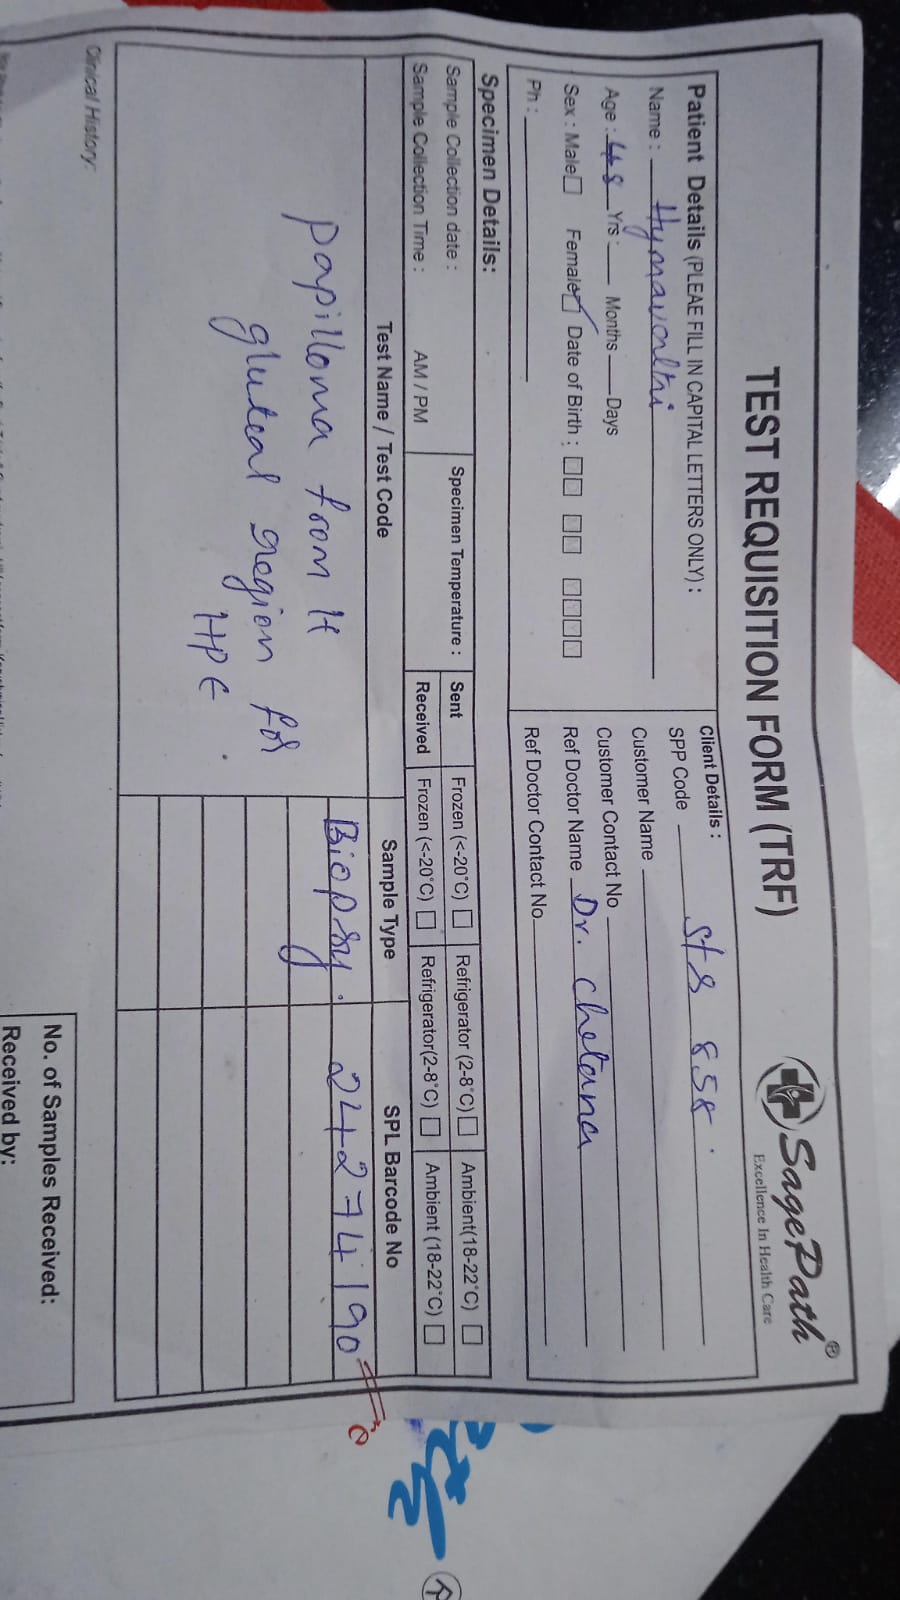 TEST REQUISITION FORM (TRF)
SagePath®
Excellence In Health Care
Patient Details (PLEAE FILL IN CAPITAL LETTERS ONLY) :
Name : Hymavathi
Age : 48 Yrs : Months Days
Sex : Male Female Date of Birth :
Ph :
Client Details :
SPP Code 858
Customer Name
Customer Contact No
Ref Doctor Name Dr. Chetana
Ref Doctor Contact No
Specimen Details:
Sample Collection date :
Sample Collection Time : AM / PM
Specimen Temperature :
Sent Frozen (<-20°C) Refrigerator (2-8°C) Ambient(18-22°C)
Received Frozen (<-20°C) Refrigerator(2-8°C) Ambient (18-22°C)
Test Name / Test Code Sample Type SPL Barcode No
papilloma from lt Biopsy. 24274190
gluteal region for
HPE.
Clinical History:
No. of Samples Received:
Received by: